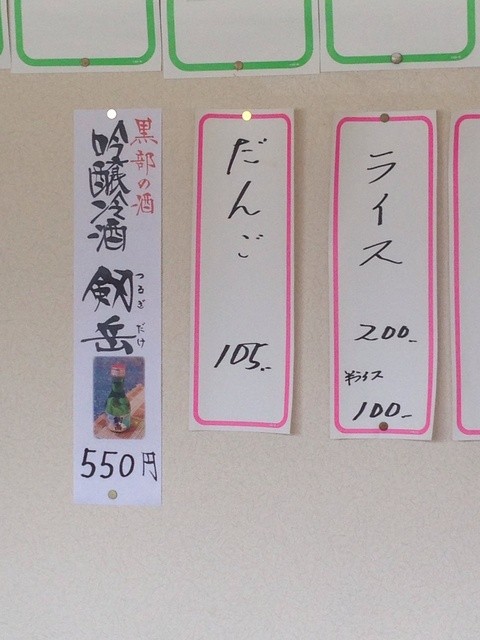 黒部の酒
吟醸冷酒
剱岳
つるぎだけ
550円
だんご
105.-
ライス
200.-
半ライス
100.-